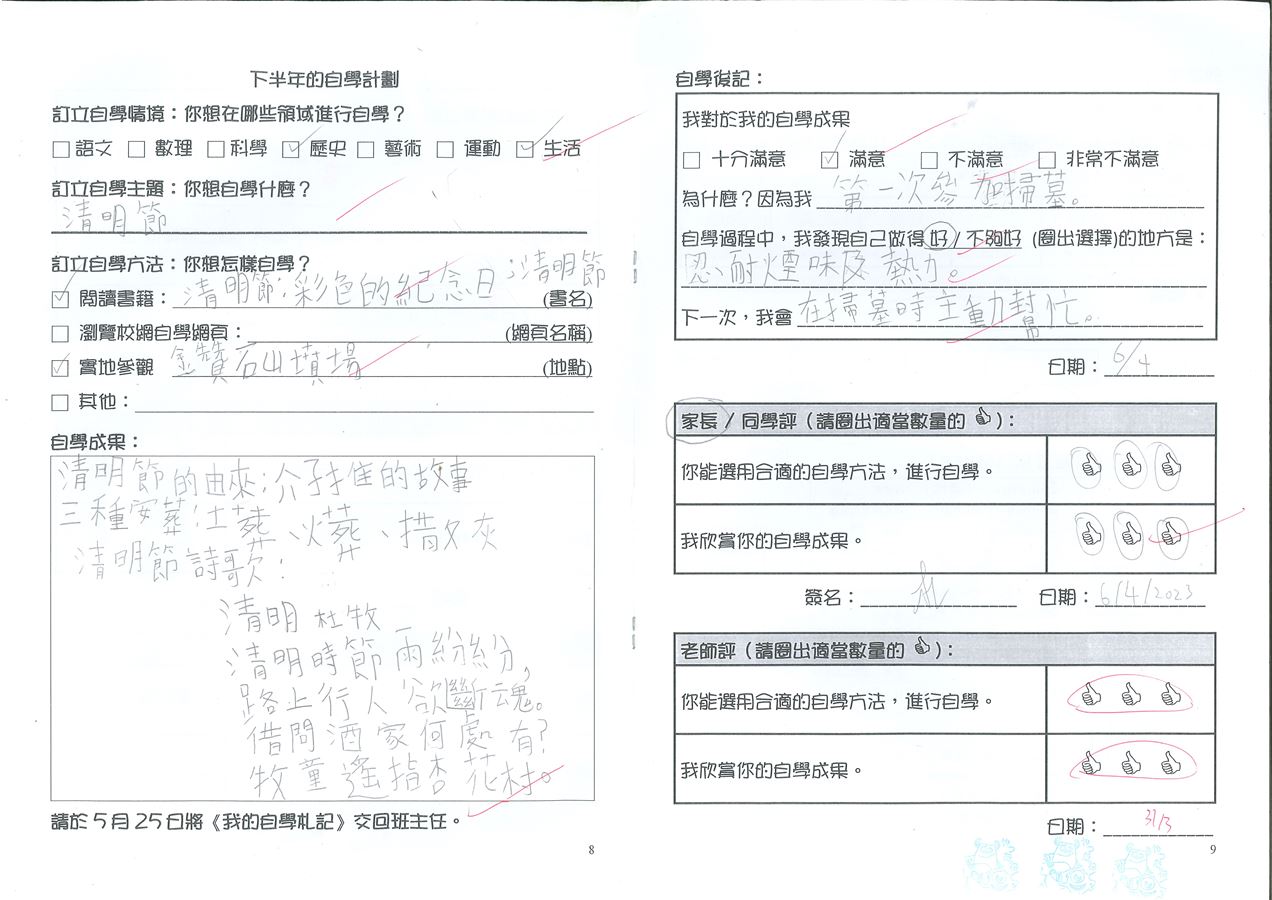 下半年的自學計劃
訂立自學情境：你想在哪些領域進行自學？
□語文 □ 數理 □科學 ☑歷史 □ 藝術 □ 運動 ☑ 生活
訂立自學主題：你想自學什麼？
清明節
訂立自學方法：你想怎樣自學？
☑ 閱讀書籍：清明節；彩色的紀念日：清明節 (書名)
□ 瀏覽校網自學網頁： (網頁名稱)
☑ 實地參觀 金寶石山墳場 (地點)
□ 其他：
自學成果：
清明節的由來：介子推的故事
三種安葬：土葬、火葬、撒灰
清明節詩歌：
清明 杜牧
清明時節雨紛紛，
路上行人欲斷魂。
借問酒家何處有？
牧童遙指杏花村。
請於5月25日將《我的自學札記》交回班主任。
8
自學後記：
我對於我的自學成果
□ 十分滿意 ☑ 滿意 □ 不滿意 □ 非常不滿意
為什麼？因為我 第一次參加掃墓。
自學過程中，我發現自己做得好/不夠好 (圈出選擇)的地方是：
忍耐煙味及熱力。
下一次，我會 在掃墓時主動幫忙。
日期：6/4
家長 / 同學評（請圈出適當數量的👍）：
你能選用合適的自學方法，進行自學。
我欣賞你的自學成果。
簽名： 日期：6/4/2023
老師評（請圈出適當數量的👍）：
你能選用合適的自學方法，進行自學。
我欣賞你的自學成果。
日期：31/3
9